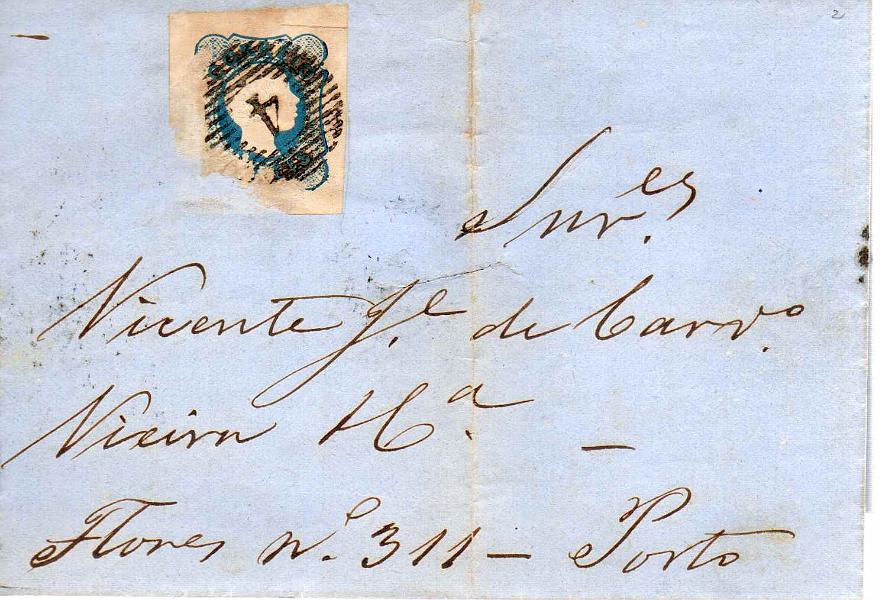 2
CORREIO
4
Snrˢ.ᵉˢ
Vicente J.ᵉ de Carv.º
Vieira & C.ª —
Flores n.º 311 — Porto